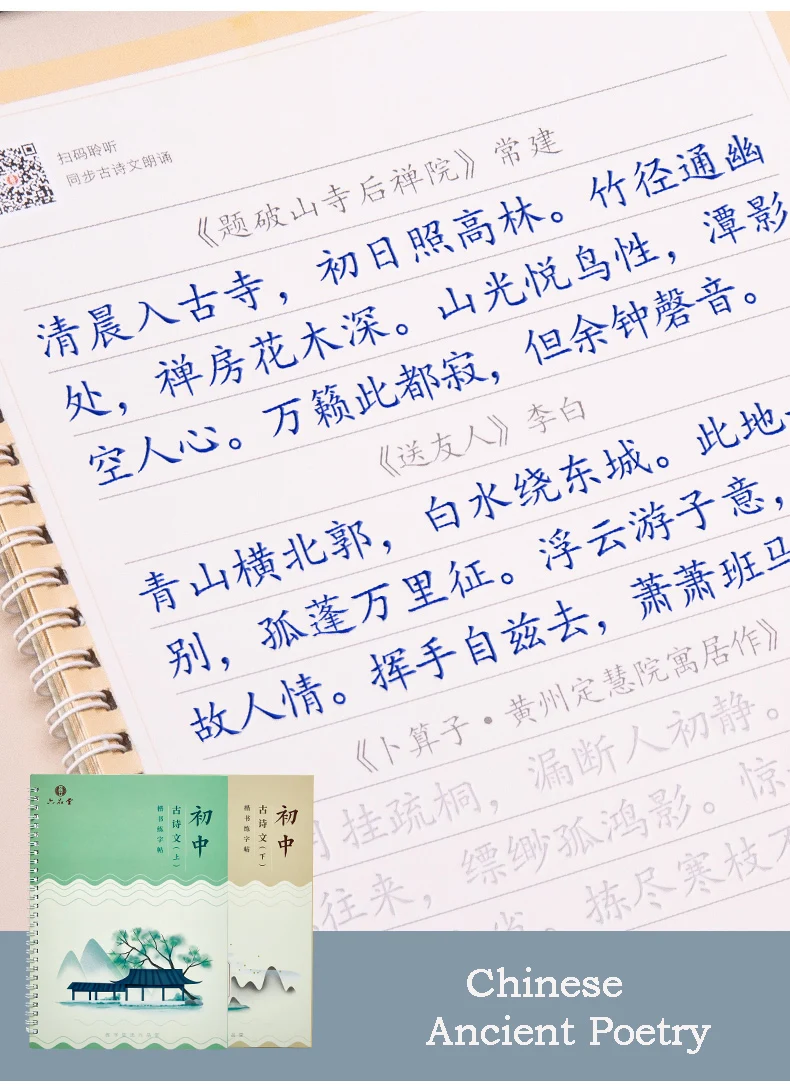 扫码聆听
同步古诗文朗诵
《题破山寺后禅院》常建
清晨入古寺，初日照高林。竹径通幽
处，禅房花木深。山光悦鸟性，潭影
空人心。万籁此都寂，但余钟磬音。
《送友人》李白
青山横北郭，白水绕东城。此地
别，孤蓬万里征。浮云游子意，
故人情。挥手自兹去，萧萧班马
《卜算子·黄州定慧院寓居作》
挂疏桐，漏断人初静。
往来，缥缈孤鸿影。惊
拣尽寒枝不
六品堂
初中
古诗文（上）
楷书练字帖
初中
古诗文（下）
楷书练字帖
Chinese
Ancient Poetry